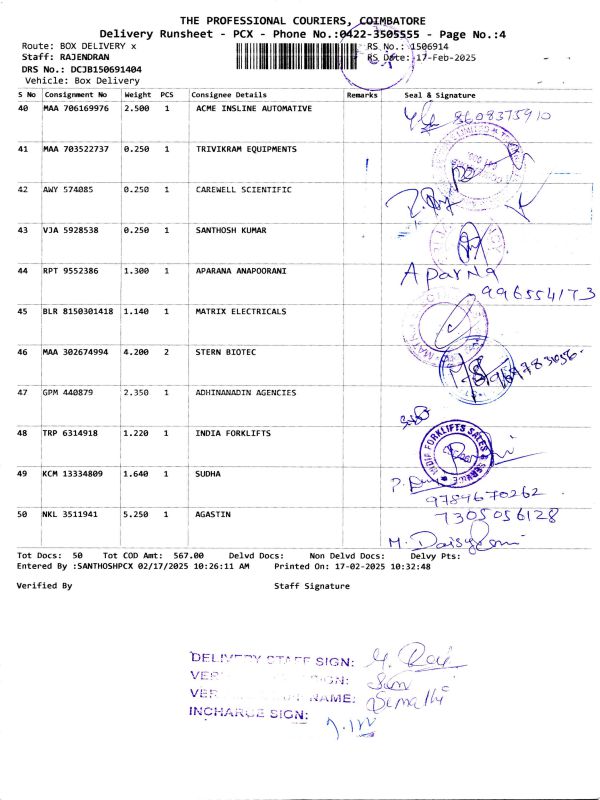 THE PROFESSIONAL COURIERS, COIMBATORE
Delivery Runsheet - PCX - Phone No.:0422-3505555 - Page No.:4
Route: BOX DELIVERY x RS No.: 1506914
Staff: RAJENDRAN RS Date: 17-Feb-2025
DRS No.: DCJB150691404
Vehicle: Box Delivery
S No Consignment No Weight PCS Consignee Details Remarks Seal & Signature
40 MAA 706169976 2.500 1 ACME INSLINE AUTOMATIVE 8608375910
41 MAA 703522737 0.250 1 TRIVIKRAM EQUIPMENTS
42 AWY 574085 0.250 1 CAREWELL SCIENTIFIC
43 VJA 5928538 0.250 1 SANTHOSH KUMAR
44 RPT 9552386 1.300 1 APARANA ANAPOORANI Aparna
996554173
45 BLR 8150301418 1.140 1 MATRIX ELECTRICALS
46 MAA 302674994 4.200 2 STERN BIOTEC
47 GPM 440879 2.350 1 ADHINANADIN AGENCIES
48 TRP 6314918 1.220 1 INDIA FORKLIFTS FORKLIFTS SALES & SERVICE
49 KCM 13334809 1.640 1 SUDHA
9784670262
50 NKL 3511941 5.250 1 AGASTIN 7305056128
M. Daisy
Tot Docs: 50 Tot COD Amt: 567.00 Delvd Docs: Non Delvd Docs: Delvy Pts:
Entered By :SANTHOSHPCX 02/17/2025 10:26:11 AM Printed On: 17-02-2025 10:32:48
Verified By Staff Signature
DELIVERY STAFF SIGN:
SIGN:
NAME:
INCHARGE SIGN: